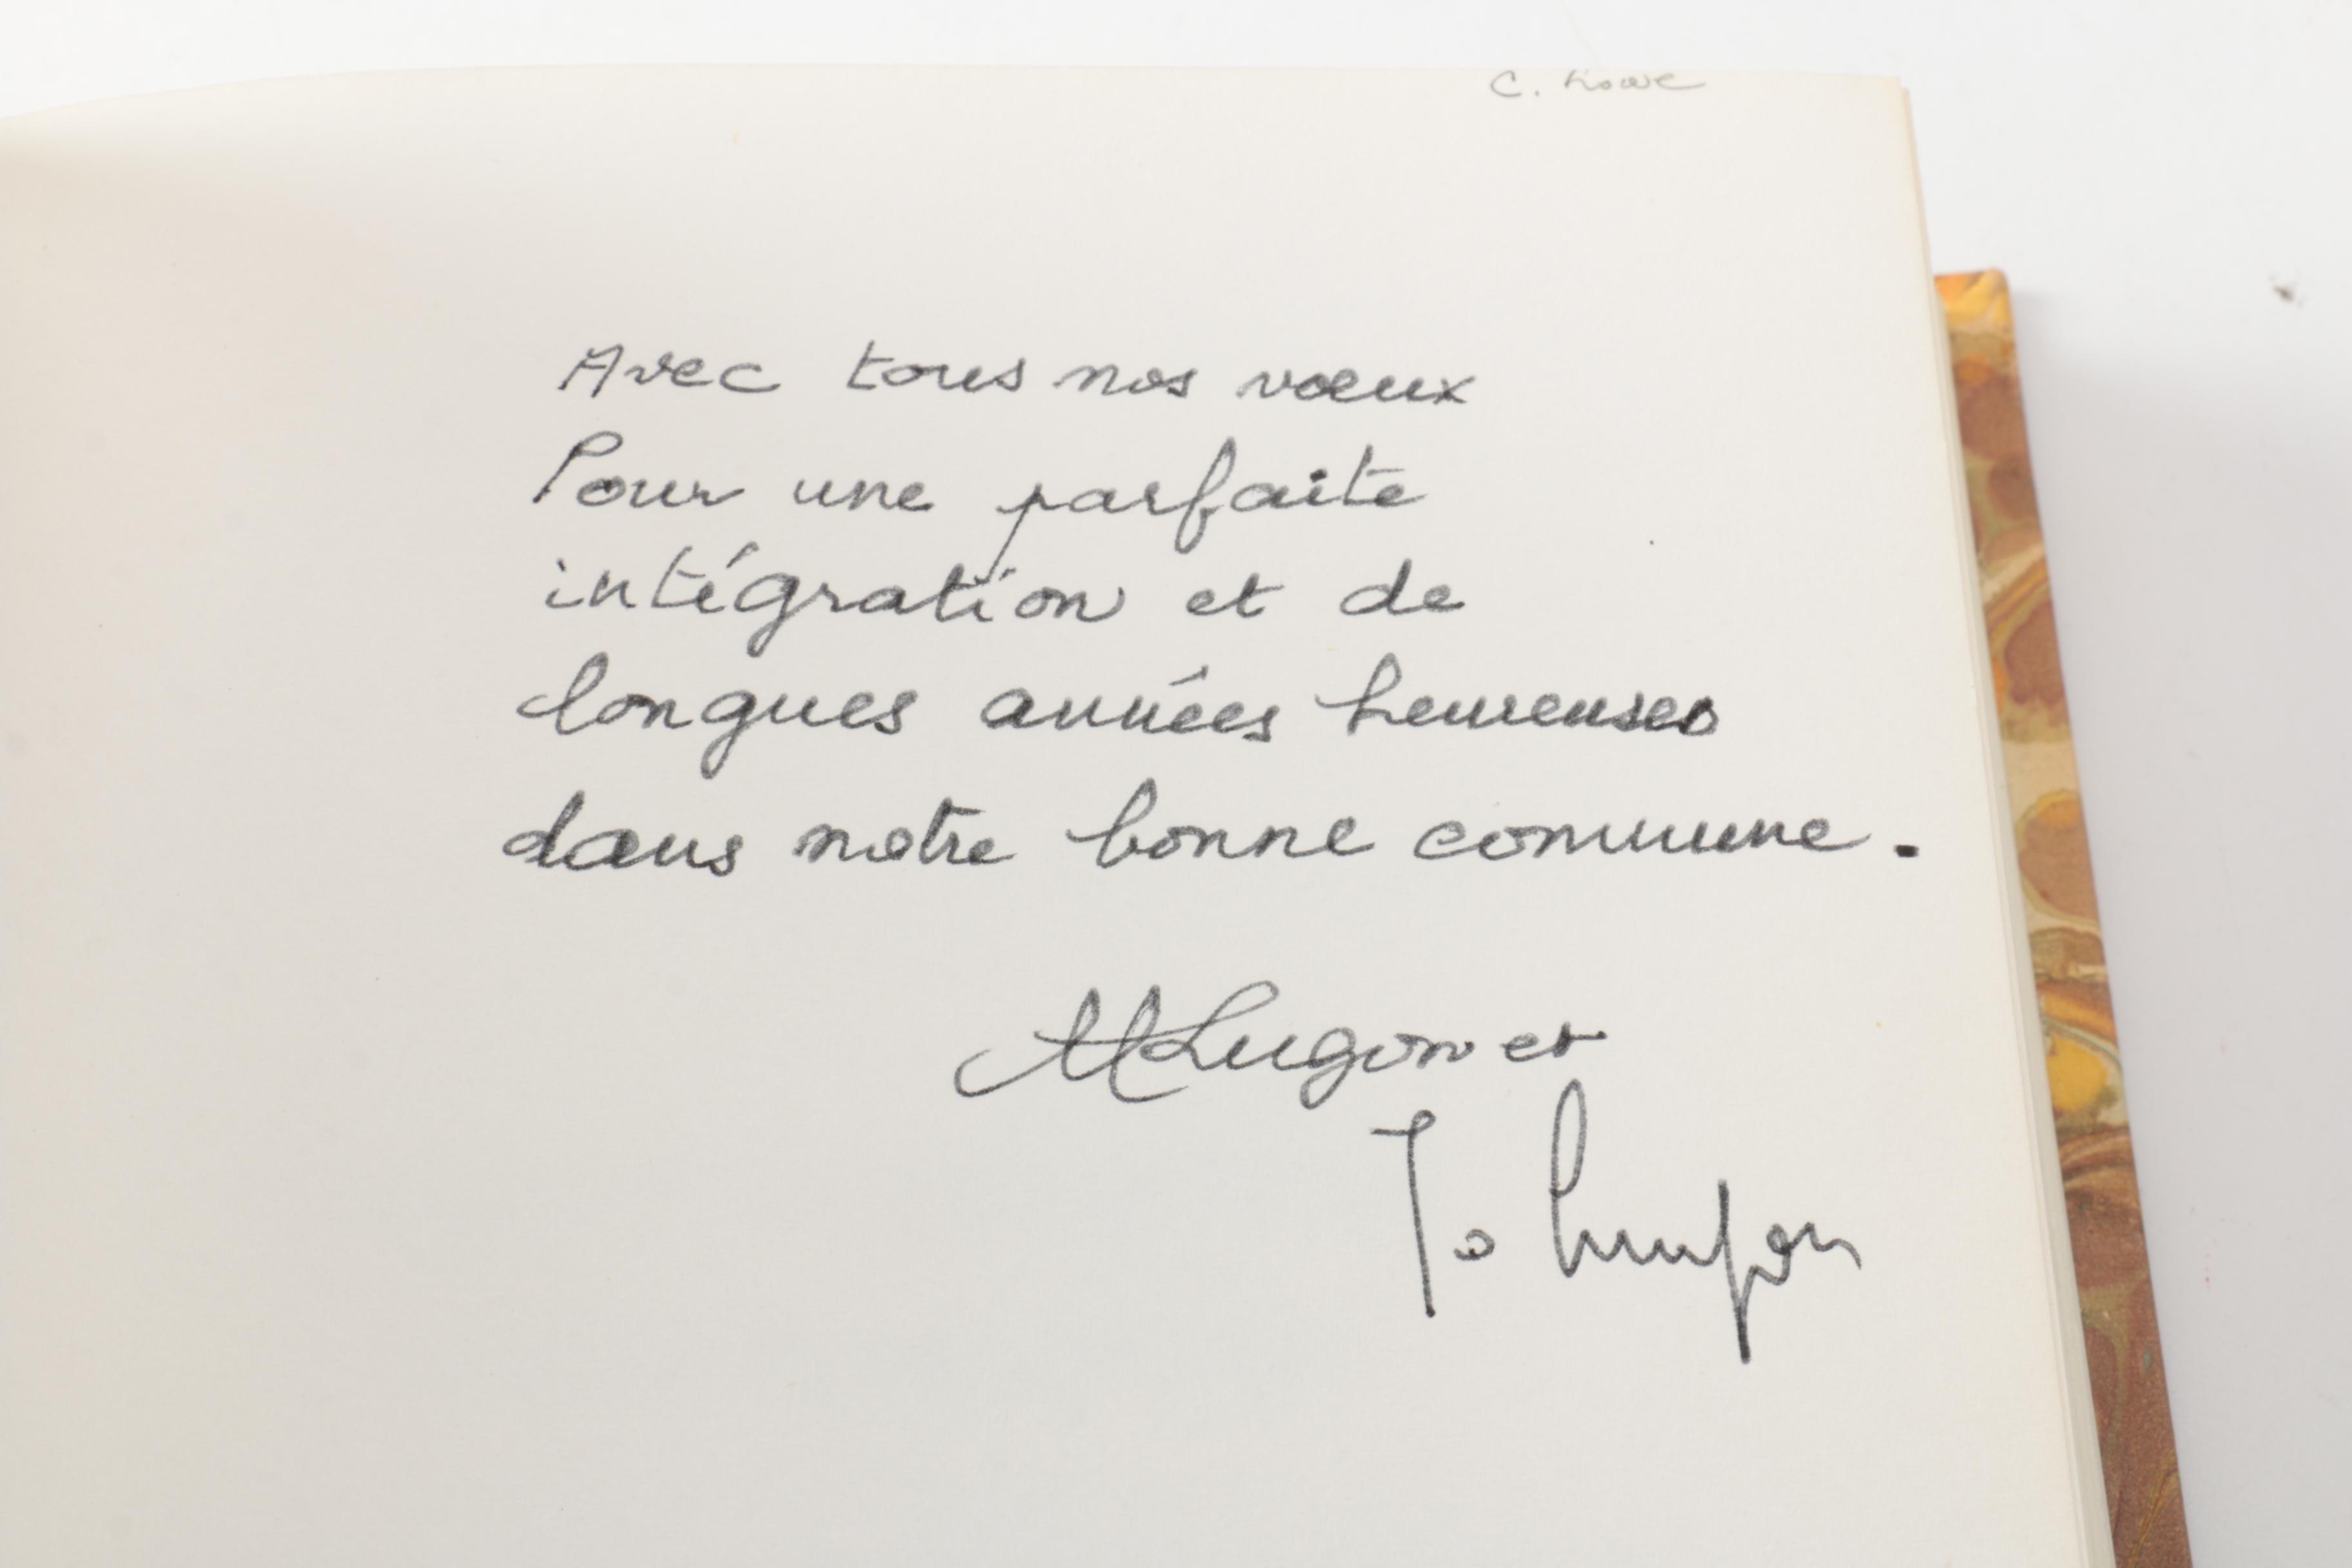 C. Lowe
Avec tous nos vœux
Pour une parfaite
intégration et de
longues années heureuses
dans notre bonne commune.
MLugon et
Jo Lugon